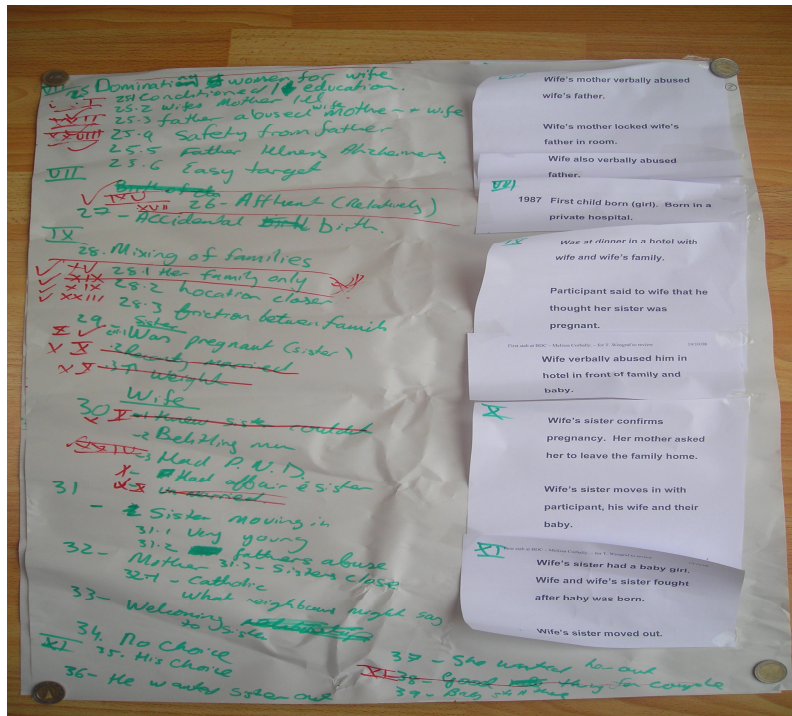 25 Domination women for wife
25.1 Conditioned education.
25.2 wifes Mother Ill
25.3 father abused mother + wife
wife
25.4 Safety from father
25.5 Father Illness Alzheimers
25.6 Easy target
VIII
26- Affluent (Relatively)
XVII
27- Accidental birth.
IX
28. Mixing of families
XV 28.1 Her family only
XIX 28.2 Location closer
XIX
XXIII 28.3 friction between family
29. Sister
X .1 Was pregnant (sister)
X X .2 Recently married
X X .3 Weight
Wife
30
X V -1 Knew sister couldn't
-2 Belittling man
-3 Had P.N.D.
Had affair & sister
married
31 - Sister moving in
31.1 Very young
31.2 fathers abuse
31.3 - Sisters close
32- Mother
32.1 - Catholic
What neighbours might say
33- Welcoming
to sister
34. No Choice
XI 35. His Choice
36- He wanted sister out
37- She wanted her out
XI 38- Good thing for couple
39- Baby
Wife's mother verbally abused
wife's father.
Wife's mother locked wife's
father in room.
Wife also verbally abused
father.
VIII
1987 First child born (girl). Born in a
private hospital.
IX
Was at dinner in a hotel with
wife and wife's family.
Participant said to wife that he
thought her sister was
pregnant.
Wife verbally abused him in
hotel in front of family and
baby.
X
Wife's sister confirms
pregnancy. Her mother asked
her to leave the family home.
Wife's sister moves in with
participant, his wife and their
baby.
XI
Wife's sister had a baby girl.
Wife and wife's sister fought
after baby was born.
Wife's sister moved out.